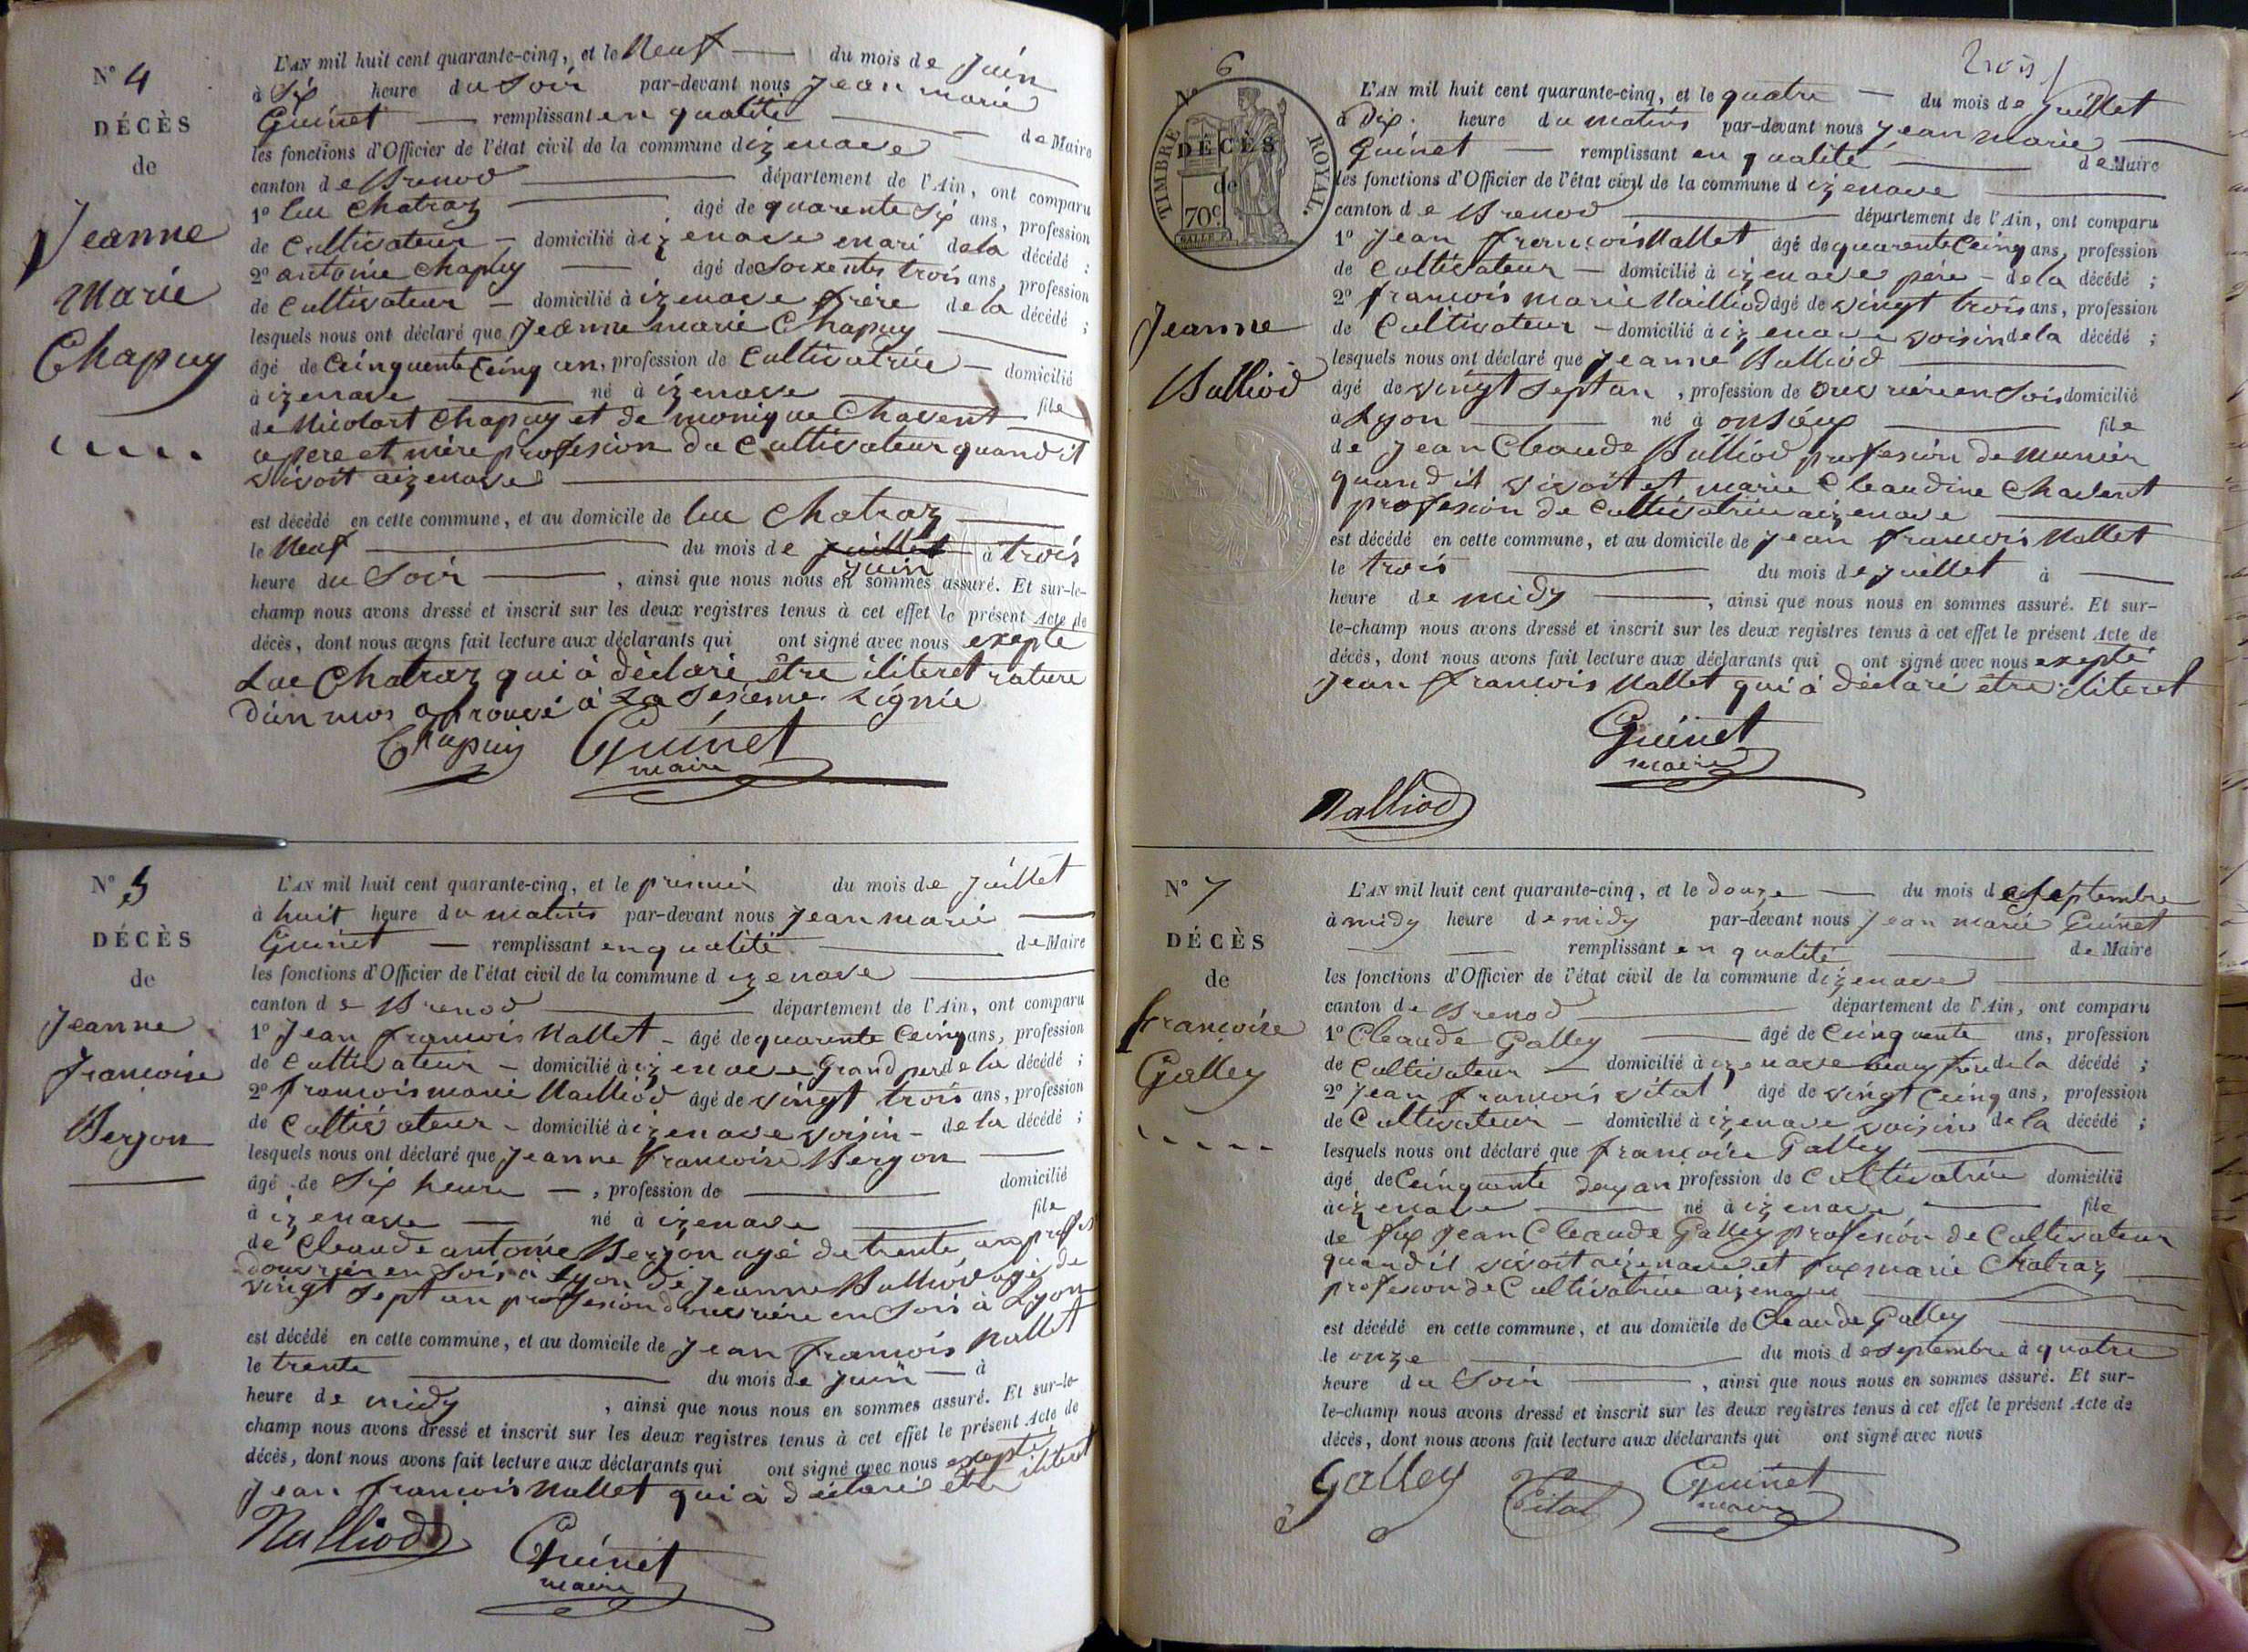 N° 4
DÉCÈS
de
Jeanne
Marie
Chapuy
L'AN mil huit cent quarante-cinq, et le Neuf du mois de Juin
à Six heure du Soir par-devant nous Jean marie
Guinet remplissant en qualité de Maire
les fonctions d'Officier de l'état civil de la commune d izenave
canton de Brenod département de l'Ain, ont comparu
1° luc Chatraz âgé de quarente Six ans, profession
de Cultivateur domicilié à izenave mari de la décédé ;
2° antoine Chapuy âgé de Soixentes trois ans, profession
de Cultivateur domicilié à izenave frère de la décédé ;
lesquels nous ont déclaré que Jeanne marie Chapuy
âgé de Ceinquente Ceinq an, profession de Cultivatrice domicilié
à izenave né à izenave file
de Nicolart Chapuy et de monique Chavent
a pere et mère profesion de Cultivateur quand it
vivoit aizenave
est décédé en cette commune, et au domicile de luc Chatraz
le Neuf du mois de juillet à trois
juin
heure du Soir , ainsi que nous nous en sommes assuré. Et sur-le-
champ nous avons dressé et inscrit sur les deux registres tenus à cet effet le présent Acte de
décès, dont nous avons fait lecture aux déclarants qui ont signé avec nous exepté
Luc Chatraz qui à déclaré être iliteret rature
d'un mos aprouvé à La Sesieme Lignie
Chapuy Guinet
maire
N° 5
DÉCÈS
de
Jeanne
Francoise
Berjon
L'AN mil huit cent quarante-cinq, et le premier du mois de Juillet
à huit heure du matins par-devant nous Jean marie
Guinet remplissant en qualité de Maire
les fonctions d'Officier de l'état civil de la commune d izenave
canton de Brenod département de l'Ain, ont comparu
1° Jean francois Nallet âgé de quarente Ceinq ans, profession
de Cultivateur domicilié à izenave Grand per de la décédé ;
2° francois marie Nailliod âgé de vingt trois ans, profession
de Cultivateur domicilié à izenave voisin de la décédé ;
lesquels nous ont déclaré que Jeanne francoise Berjon
âgé de Six heure , profession de domicilié
à izenave né à izenave file
de Cleaude antoine Berjon agé de trente an profes
douvrier en Sois à Lyon de Jeanne Balliod agé de
vingt sept an profesion douvrière en Sois à Lyon
est décédé en cette commune, et au domicile de Jean francois Nallet
le trente du mois de juin à
heure de midy , ainsi que nous nous en sommes assuré. Et sur-le-
champ nous avons dressé et inscrit sur les deux registres tenus à cet effet le présent Acte de
décès, dont nous avons fait lecture aux déclarants qui ont signé avec nous exepté
Jean francois Nallet qui à déclaré etre iliteret
Nalliod Guinet
maire
trois
N° 6
TIMBRE ROYAL
70c
DÉCÈS
de
Jeanne
Balliod
L'AN mil huit cent quarante-cinq, et le quatre du mois de Juillet
à Dix heure du matins par-devant nous Jean marie
Guinet remplissant en qualité de Maire
les fonctions d'Officier de l'état civil de la commune d izenave
canton de Brenod département de l'Ain, ont comparu
1° Jean francois Nallet âgé de quarente Ceinq ans, profession
de Cultivateur domicilié à izenave père de la décédé ;
2° francois marie Nailliod âgé de vingt trois ans, profession
de Cultivateur domicilié à izenave voisin de la décédé ;
lesquels nous ont déclaré que Jeanne Balliod
âgé de vingt sept an , profession de ouvrière en Sois domicilié
à Lyon né à file
de Jean Cleaude Balliod profesion de munier
quand il vivoit et marie Cleaudine Chavent
profesion de Cultivatrice aizenave
est décédé en cette commune, et au domicile de Jean francois Nallet
le trois du mois de juillet à
heure de midy , ainsi que nous nous en sommes assuré. Et sur-
le-champ nous avons dressé et inscrit sur les deux registres tenus à cet effet le présent Acte de
décès, dont nous avons fait lecture aux déclarants qui ont signé avec nous exepté
Jean francois Nallet qui à déclaré être iliteret
Guinet
maire
Nalliod
N° 7
DÉCÈS
de
francoise
Galley
L'AN mil huit cent quarante-cinq, et le douze du mois de Septembre
à midy heure de midy par-devant nous Jean marie Guinet
remplissant en qualité de Maire
les fonctions d'Officier de l'état civil de la commune d izenave
canton de Brenod département de l'Ain, ont comparu
1° Cleaude Galley âgé de Ceinquente ans, profession
de Cultivateur domicilié à izenave beau frere de la décédé ;
2° Jean francois vital âgé de vingt Ceinq ans, profession
de Cultivateur domicilié à izenave voisin de la décédé ;
lesquels nous ont déclaré que francoise Galley
âgé de Ceinquente deux an profession de Cultivatrice domicilié
à izenave né à izenave file
de fux Jean Cleaude Galley profesion de Cultivateur
quand il vivoit aizenave et fux marie Chatraz
profesion de Cultivatrice aizenave
est décédé en cette commune, et au domicile de Cleaude Galley
le onze du mois de septembre à quatre
heure du Soir , ainsi que nous nous en sommes assuré. Et sur-
le-champ nous avons dressé et inscrit sur les deux registres tenus à cet effet le présent Acte de
décès, dont nous avons fait lecture aux déclarants qui ont signé avec nous
Galley Vital Guinet
maire